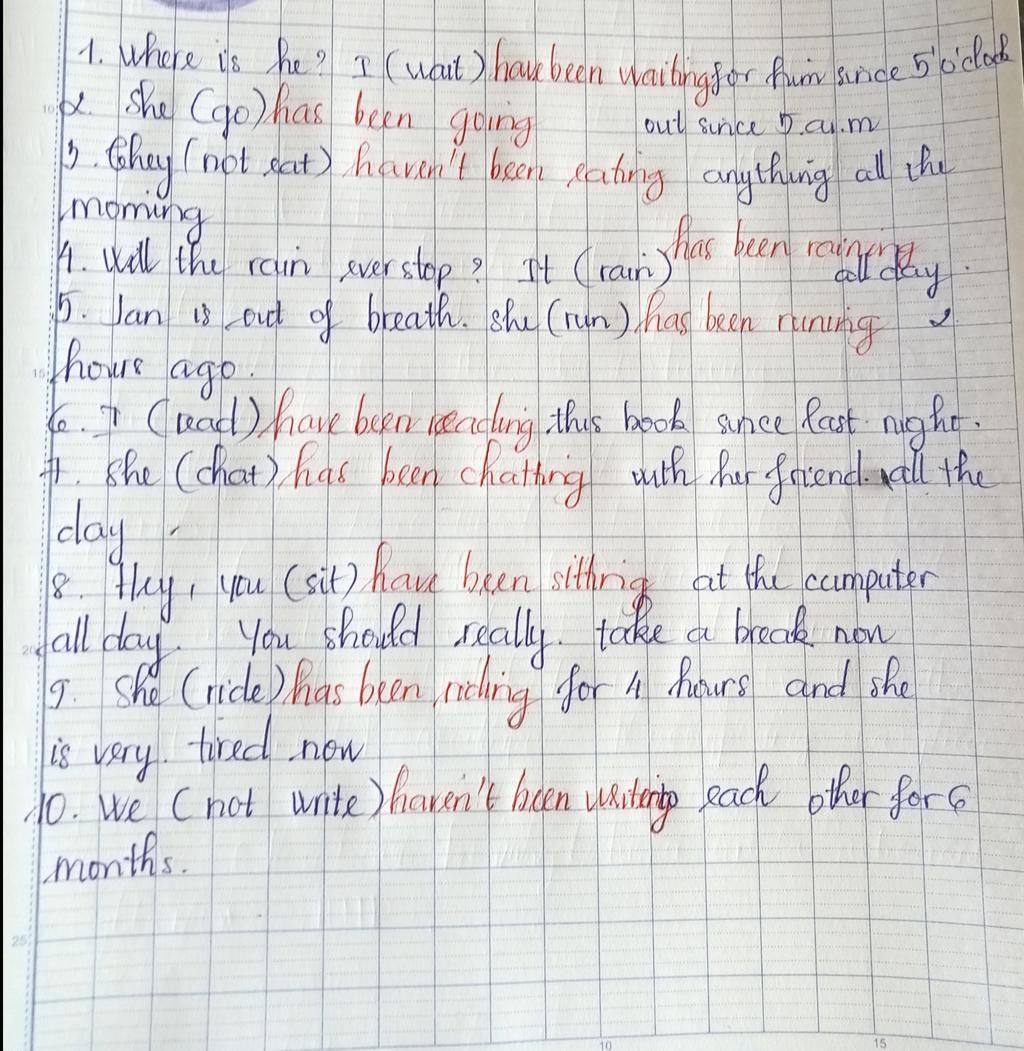 1. Where is he? I (wait) have been waiting for him since 5 o'clock
2. She (go) has been going out since 5.a.m
3. They (not eat) haven't been eating anything all the
morning
4. Will the rain ever stop? It (rain) has been raining all day.
5. Jan is out of breath. she (run) has been runing 2
hours ago.
6. I (read) have been reading this book since last night.
7. She (chat) has been chatting with her friend. all the
day
8. Hey, you (sit) have been sitting at the camputer
all day. You should really. take a break now
9. She (ride) has been riding for 4 hours and she
is very. tired now
10. We (not write) haven't been writing each other for 6
months.
10
15
20
25
10
15